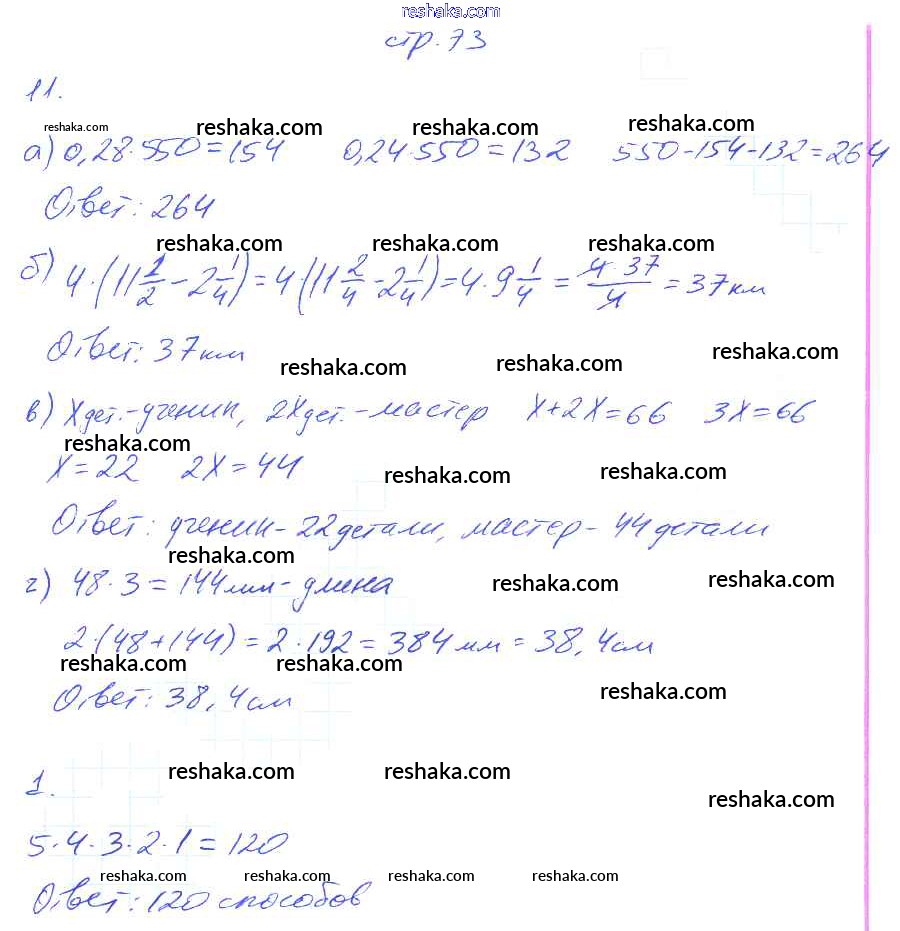 reshaka.com
стр. 73
11.
reshaka.com reshaka.com reshaka.com reshaka.com
а) 0,28·550=154 0,24·550=132 550-154-132=264
Ответ: 264
reshaka.com reshaka.com reshaka.com
б) 4·(11 1/2 - 2 1/4) = 4·(11 2/4 - 2 1/4) = 4·9 1/4 = 4·37/4 = 37 км
Ответ: 37 км
reshaka.com reshaka.com reshaka.com
в) X дет.-ученик, 2X дет.-мастер X+2X=66 3X=66
reshaka.com
X=22 2X=44
reshaka.com reshaka.com
Ответ: ученик-22 детали, мастер-44 детали
reshaka.com reshaka.com reshaka.com
г) 48·3=144 мм-длина
2·(48+144)=2·192=384 мм=38,4 см
reshaka.com reshaka.com reshaka.com
Ответ: 38,4 см
reshaka.com reshaka.com reshaka.com
1.
5·4·3·2·1=120
reshaka.com reshaka.com reshaka.com reshaka.com
Ответ: 120 способов